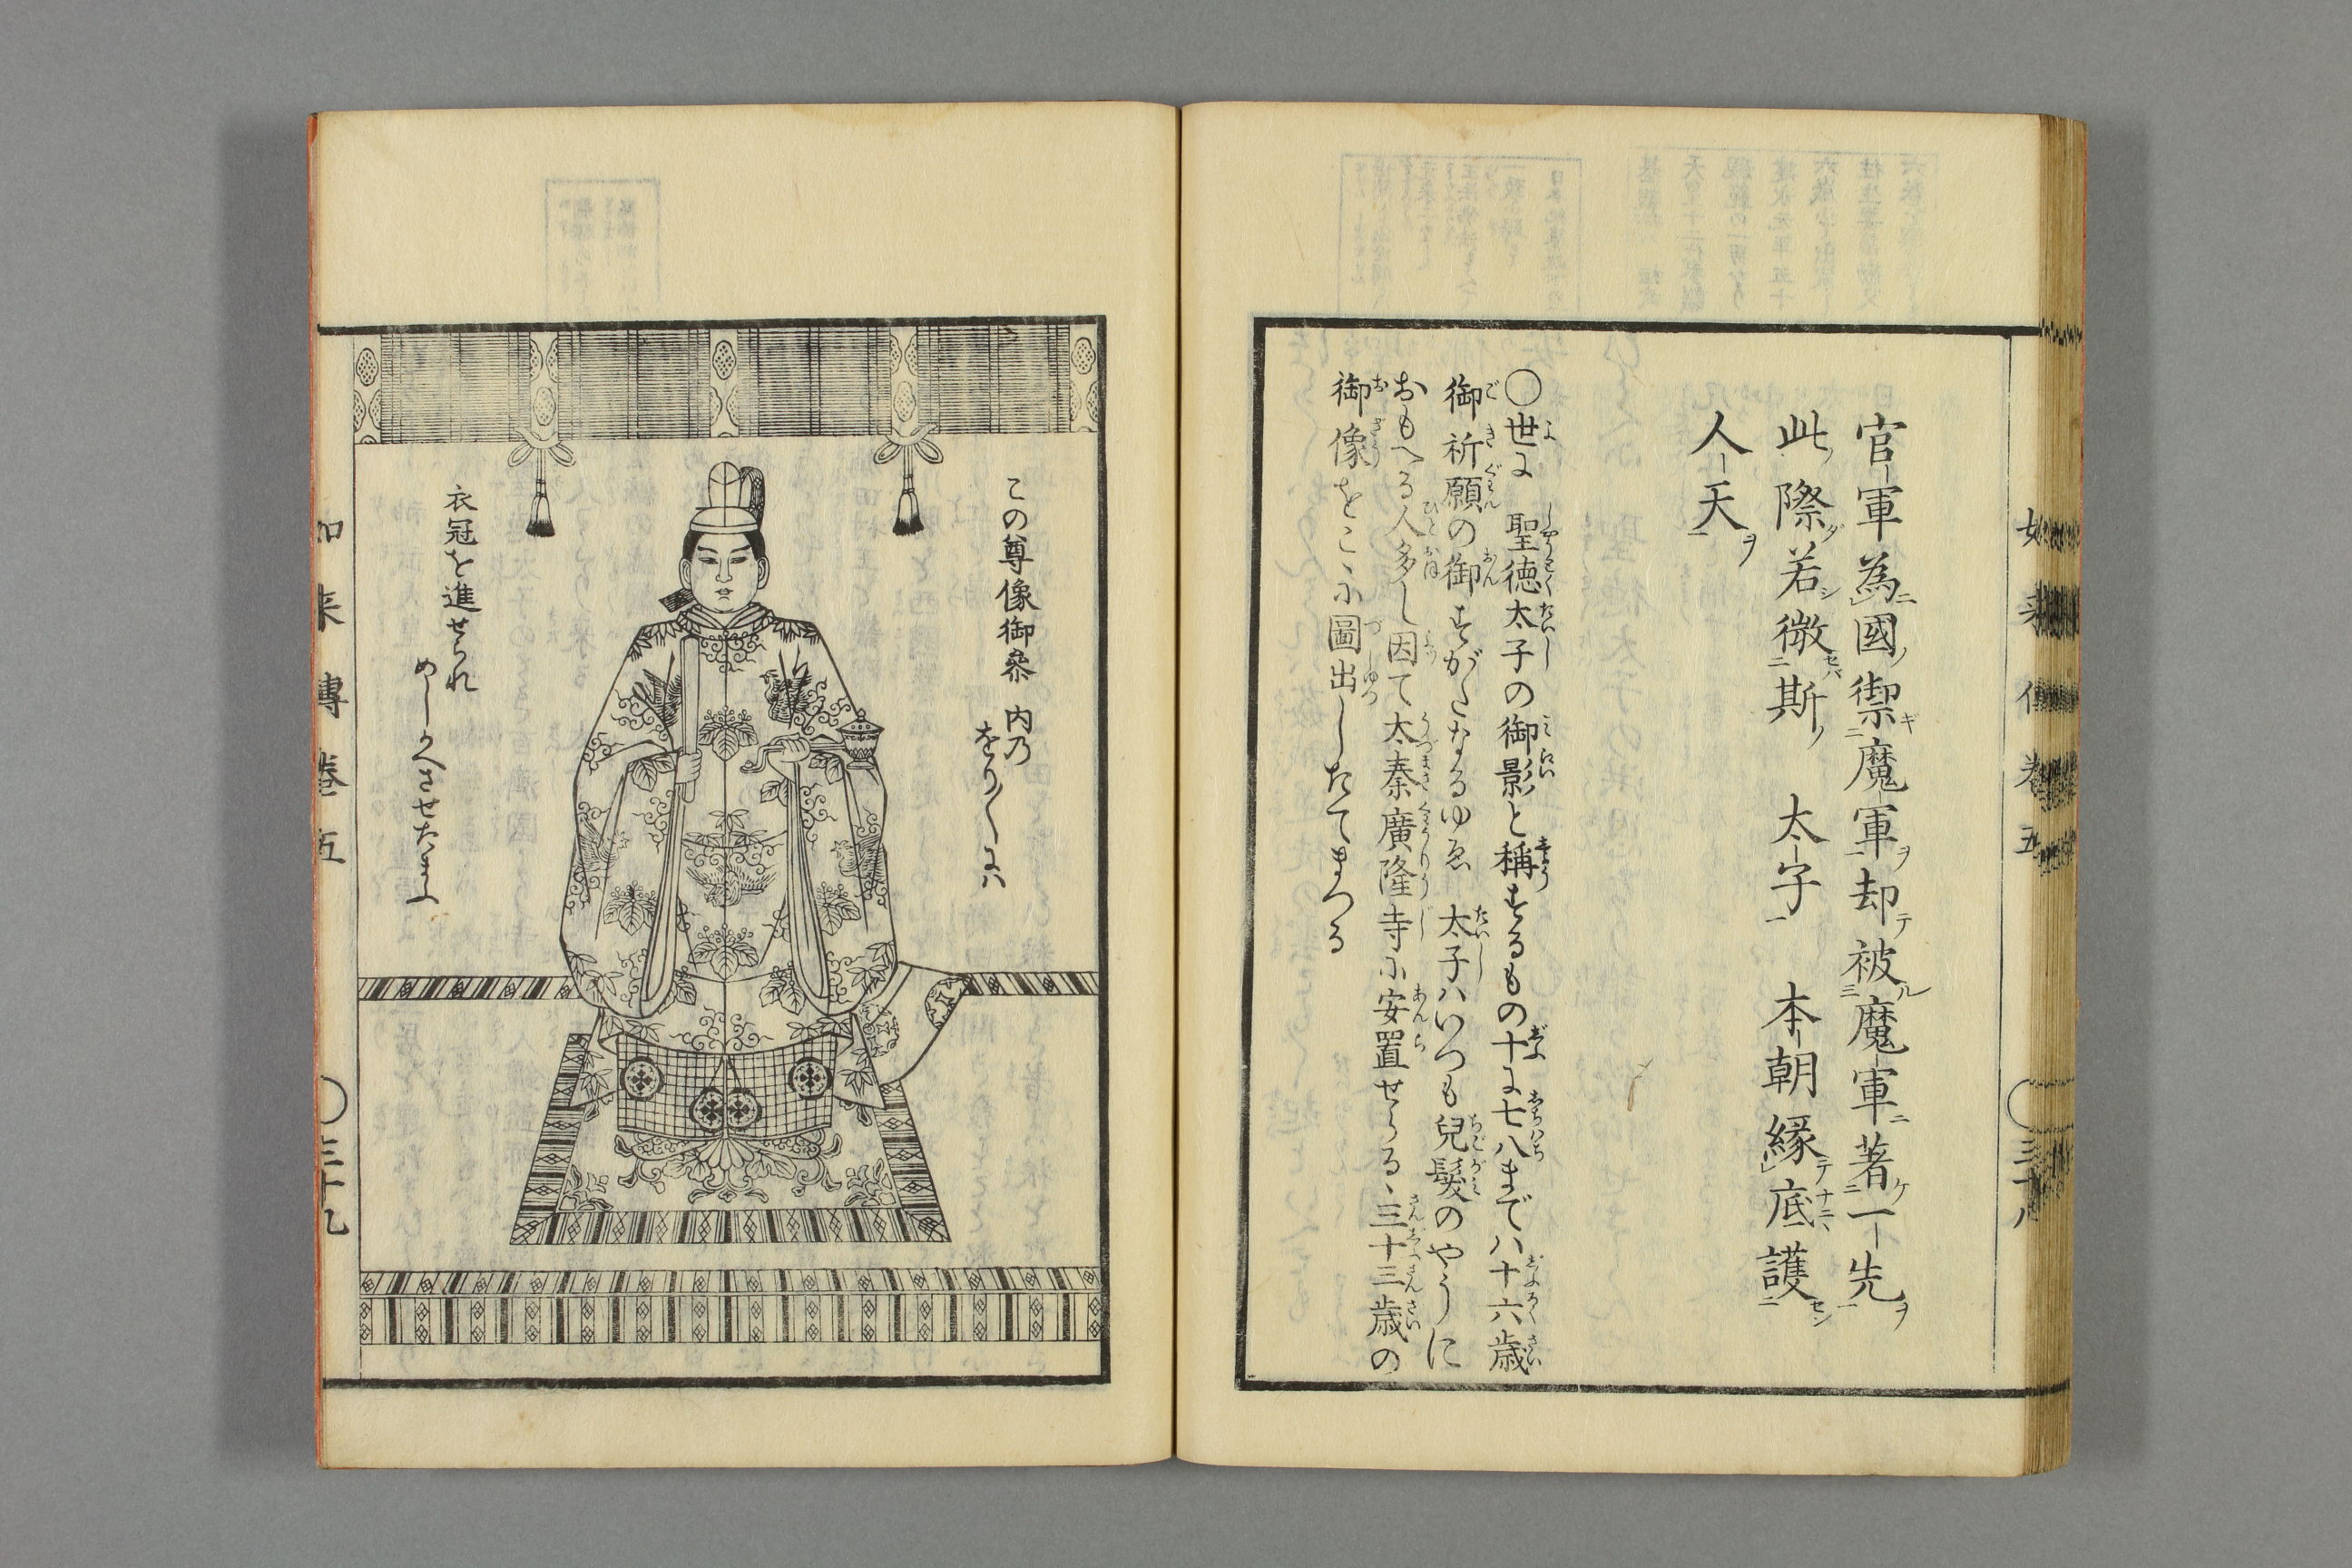 官軍為國禦魔軍却被魔軍著一先
此際若微斯　太子　本朝縁底護
人天
○世に　聖徳太子の御影と稱するもの十に七八まで八十六歳
御祈願の御すがたなるゆゑ　太子ハいつも兒髮のやうに
おもへる人多し因て太秦廣隆寺に安置せらるゝ三十三歳の
御像をこゝに圖出したてまつる
如来傳巻五　○三十八
この尊像御叅　内乃
をり〳〵にハ
衣冠を進せられ
めしかへさせたまふ
如来傳巻五　○三十九